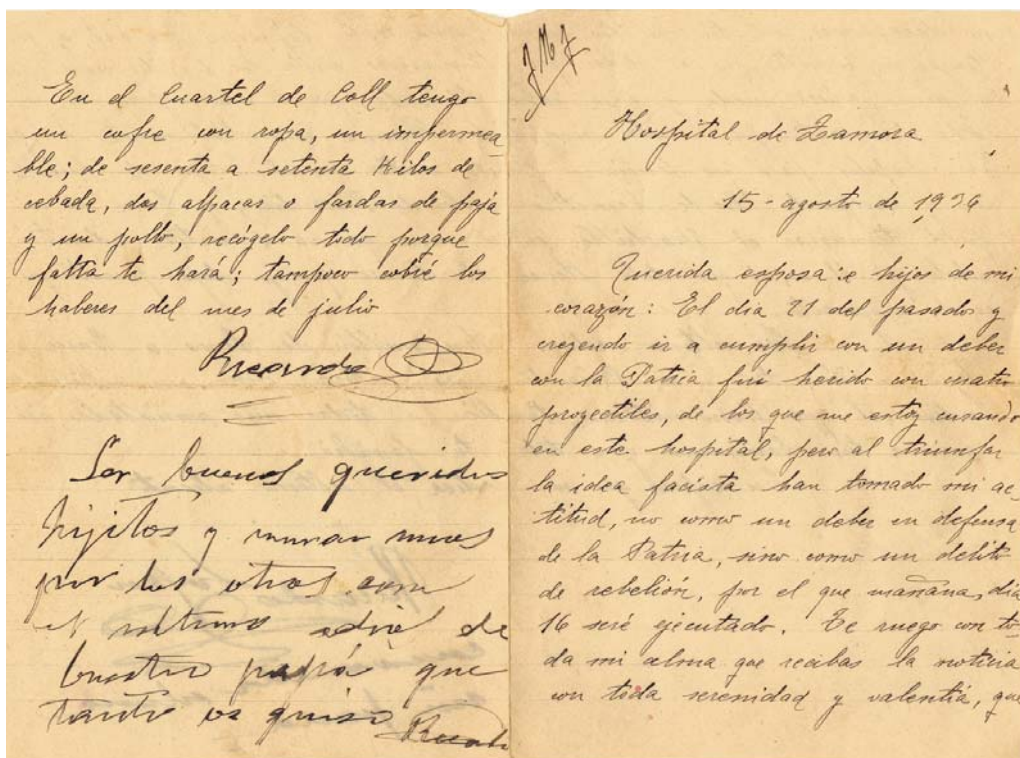 En el Cuartel de Coll tengo
un cofre con ropa, un impermea
ble; de sesenta a setenta Kilos de
cebada, dos alpacas o fardas de paja
y un pollo, recógelo todo porque
falta te hará; tampoco cobré los
haberes del mes de julio
Ricardo
Ser buenos queridos
hijitos y mirar unos
por los otros
el ultimo adiós de
buestro papá que
tanto os quiso Ricardo
JMJ
Hospital de Zamora
15-agosto de 1,936
Querida esposa: e hijos de mi
corazón: El dia 21 del pasado y
creyendo ir a cumplir con un deber
con la Patria fui herido con cuatro
proyectiles, de los que me estoy curando
en este hospital, pero al triunfar
la idea facista han tomado mi ac,
titud, no como un deber en defensa
de la Patria, sino como un delito
de rebelión, por el que mañana, dia
16 seré ejecutado. Te ruego con to
da mi alma que recibas la noticia
con toda serenidad y valentia, que